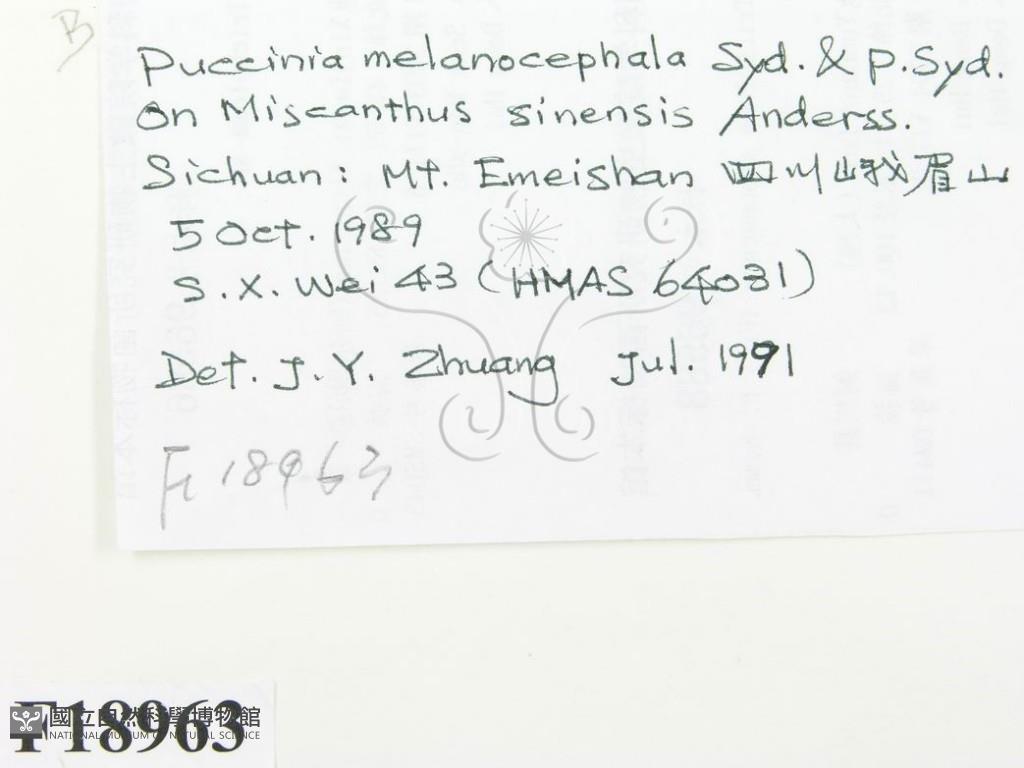 B
Puccinia melanocephala Syd. & P. Syd.
on Miscanthus sinensis Anderss.
Sichuan: Mt. Emeishan 四川峨眉山
5 Oct. 1989
S. X. Wei 43 (HMAS 64031)
Det. J. Y. Zhuang Jul. 1991
F18963
F18963
國立自然科學博物館
NATIONAL MUSEUM OF NATURAL SCIENCE